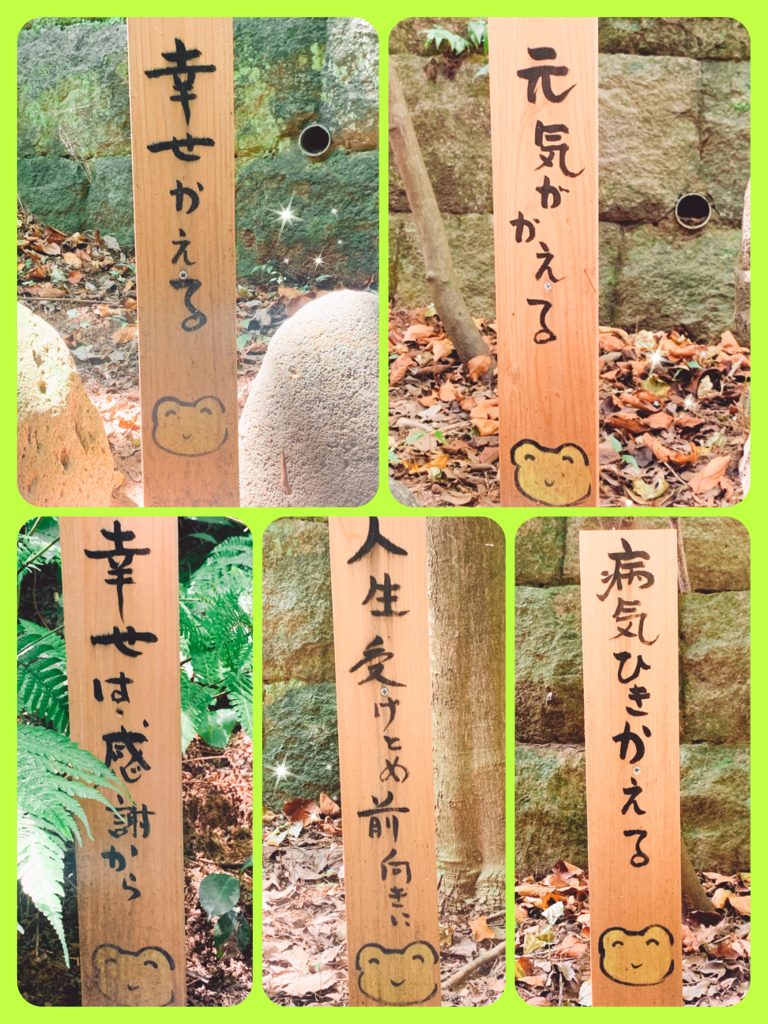 幸せかえる
元気がかえる
幸せは感謝から
人生受けとめ前向きに
病気ひきかえる